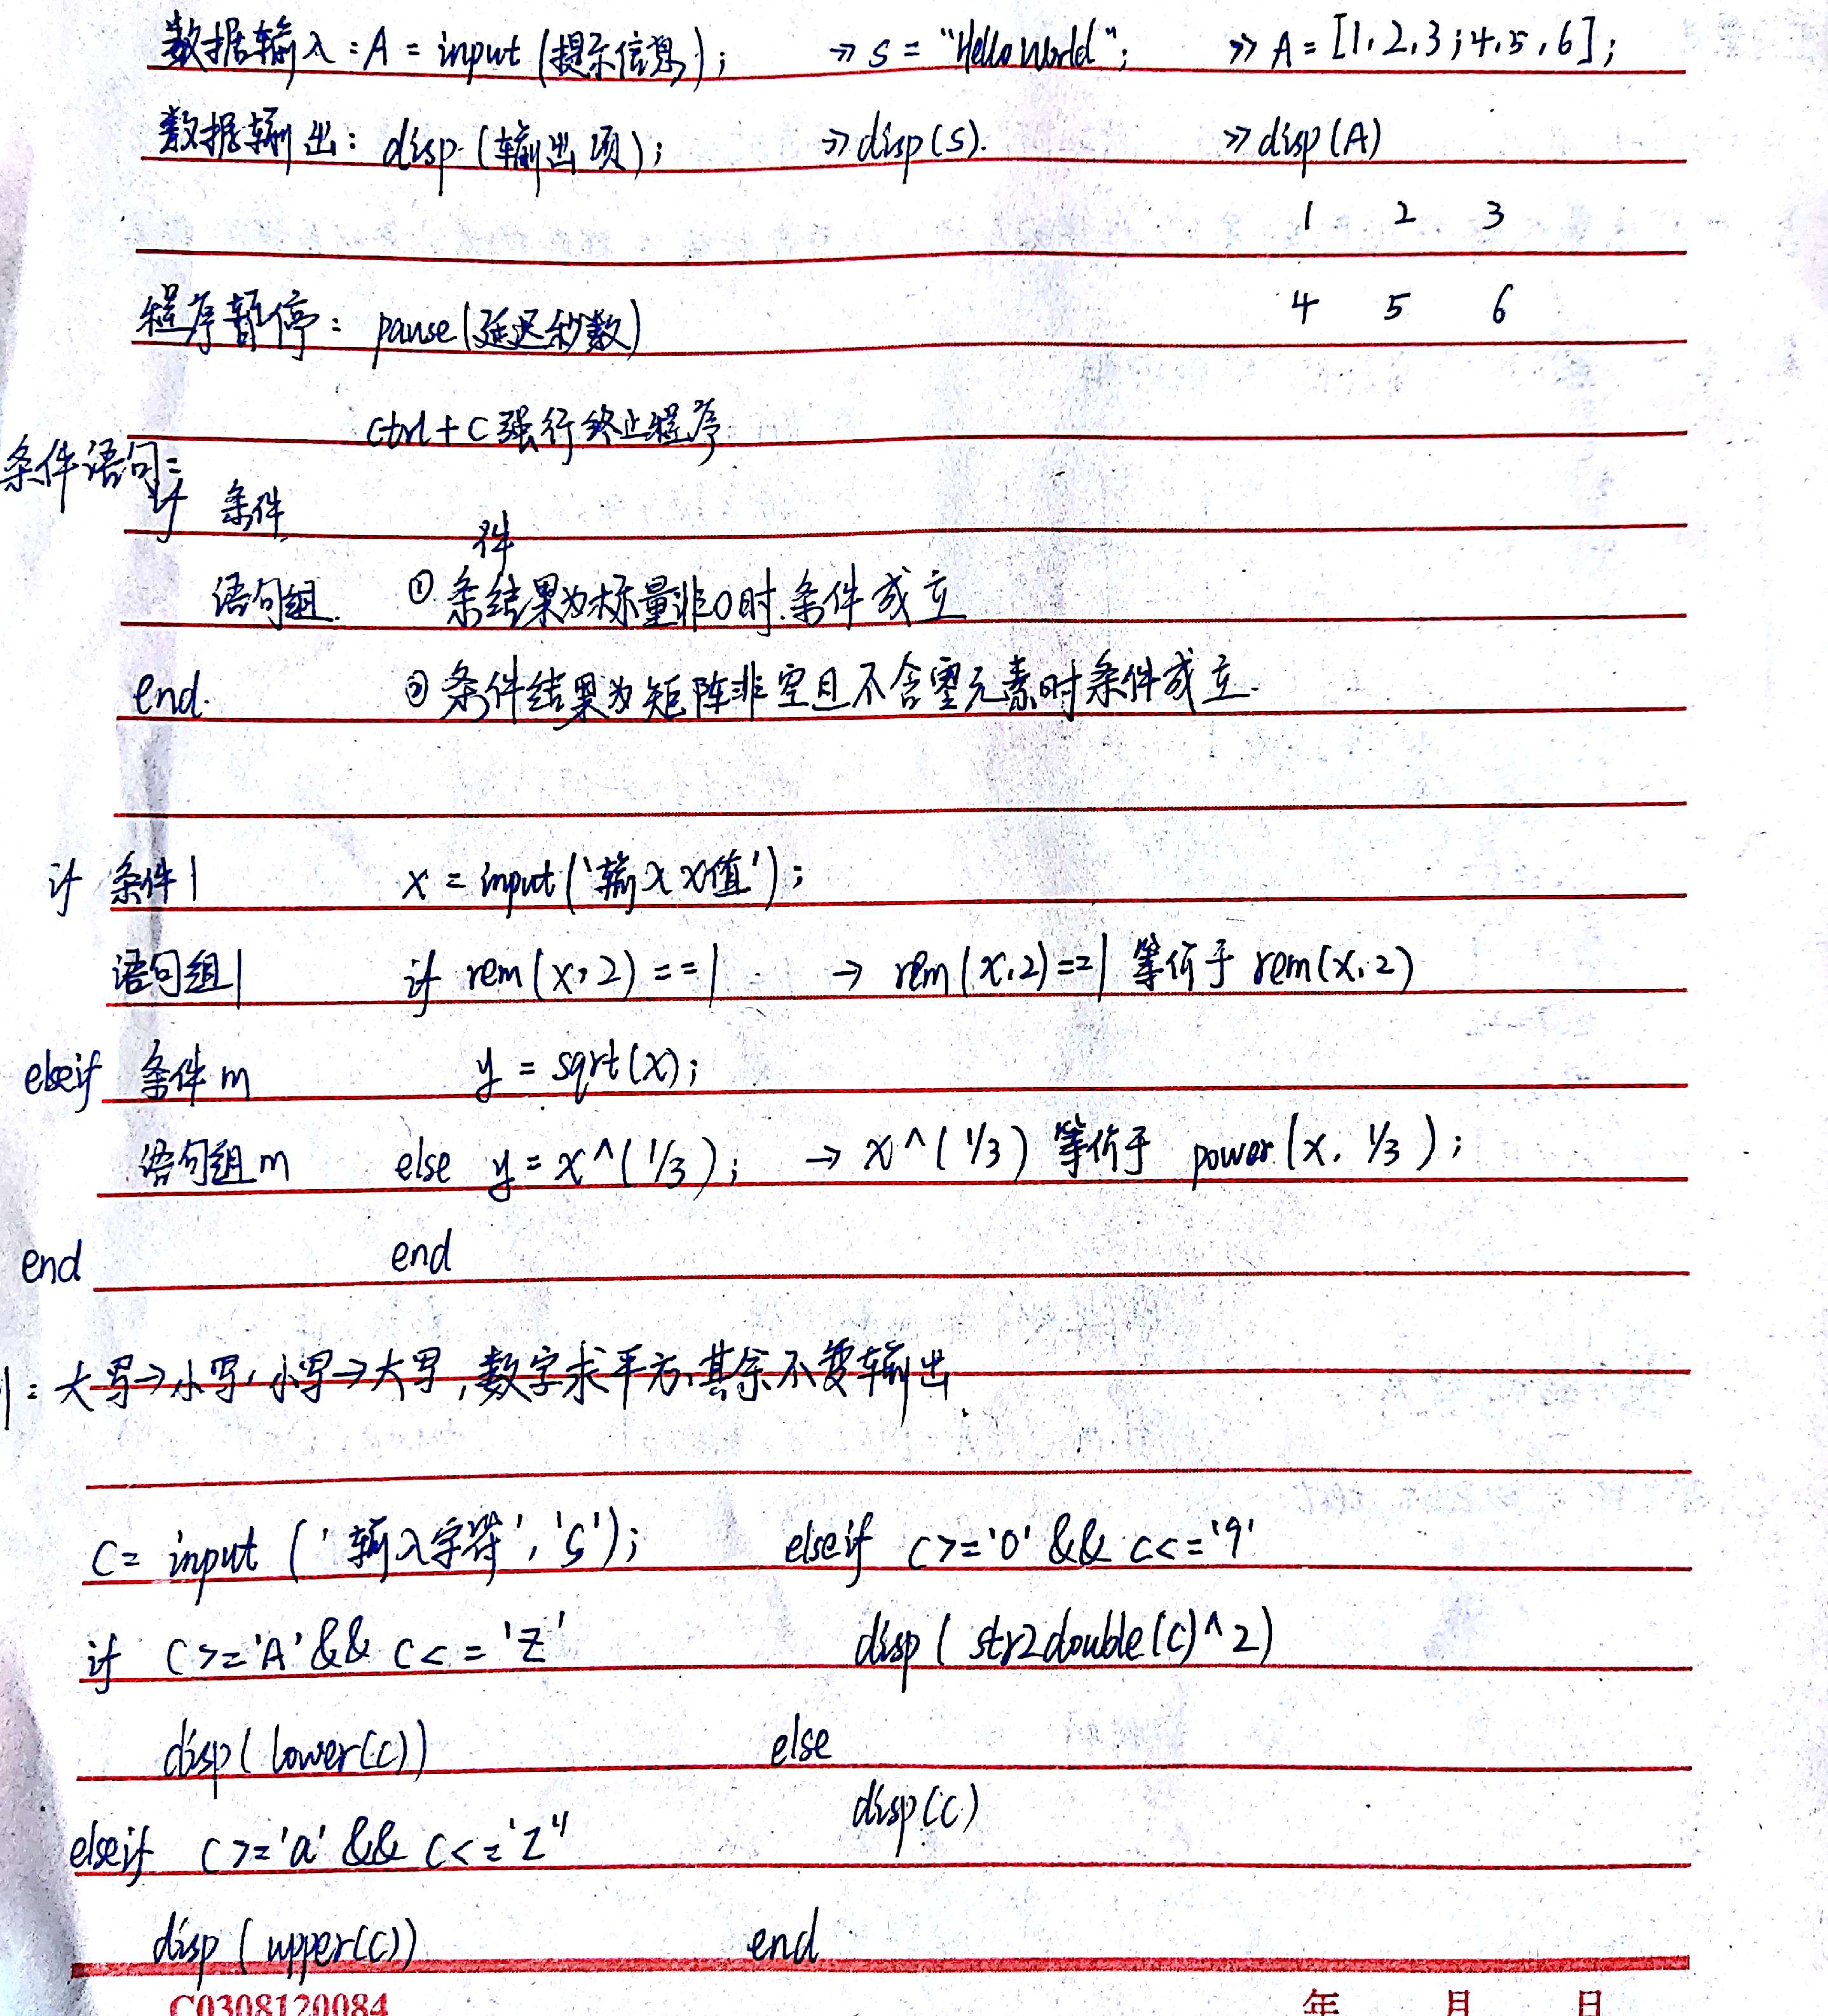 数据输入：A = input (提示信息)； >> s = "Hello World"; >> A = [1,2,3;4,5,6];
数据输出：disp (输出项)； >> disp(s). >> disp(A)
1 2 3
4 5 6
程序暂停：pause(延迟秒数)
Ctrl+C 强行终止程序
条件语句：
if 条件
件
语句组 ① 条结果为标量非0时.条件成立
end. ② 条件结果为矩阵非空且不含零元素时条件成立.
if 条件1 x = input('输入x值');
语句组1 if rem(x,2)==1 → rem(x,2)==1 等价于 rem(x,2)
elseif 条件m y = sqrt(x);
语句组m else y = x^(1/3); → x^(1/3) 等价于 power(x, 1/3);
end end
：大写→小写，小写→大写，数字求平方，其余不变输出.
C= input ('输入字符','s'); elseif c>='0' && c<='9'
if C>='A' && c<='Z' disp( str2double(c)^2)
disp( lower(c)) else
elseif c>='a' && c<='z' disp(c)
disp( upper(c)) end
C0308120084 年 月 日